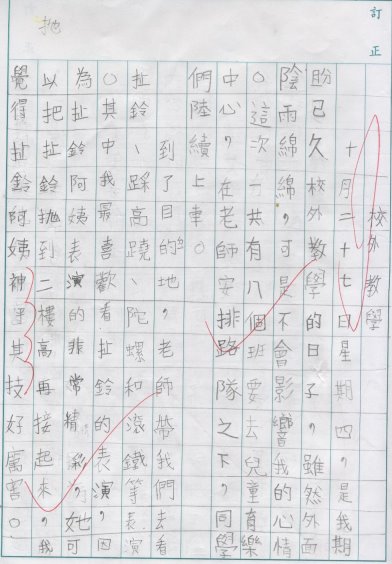 訂正
校外教學
十月二十七日星期四，是我期
盼已久校外教學的日子，雖然外面
陰雨綿綿，可是不會影響我的心情
。這次一共有八個班要去兒童育樂
中心，在老師安排路隊之下，同學
們陸續上車。
到了目的地，老師帶我們去看
扯鈴、踩高蹺、陀螺和滾鐵等表演
。其中我最喜歡看扯鈴的表演，因
為扯鈴阿姨表演的非常精彩，她可
以把扯鈴拋到二樓高再接起來，我
覺得扯鈴阿姨神乎其技好厲害。
拋